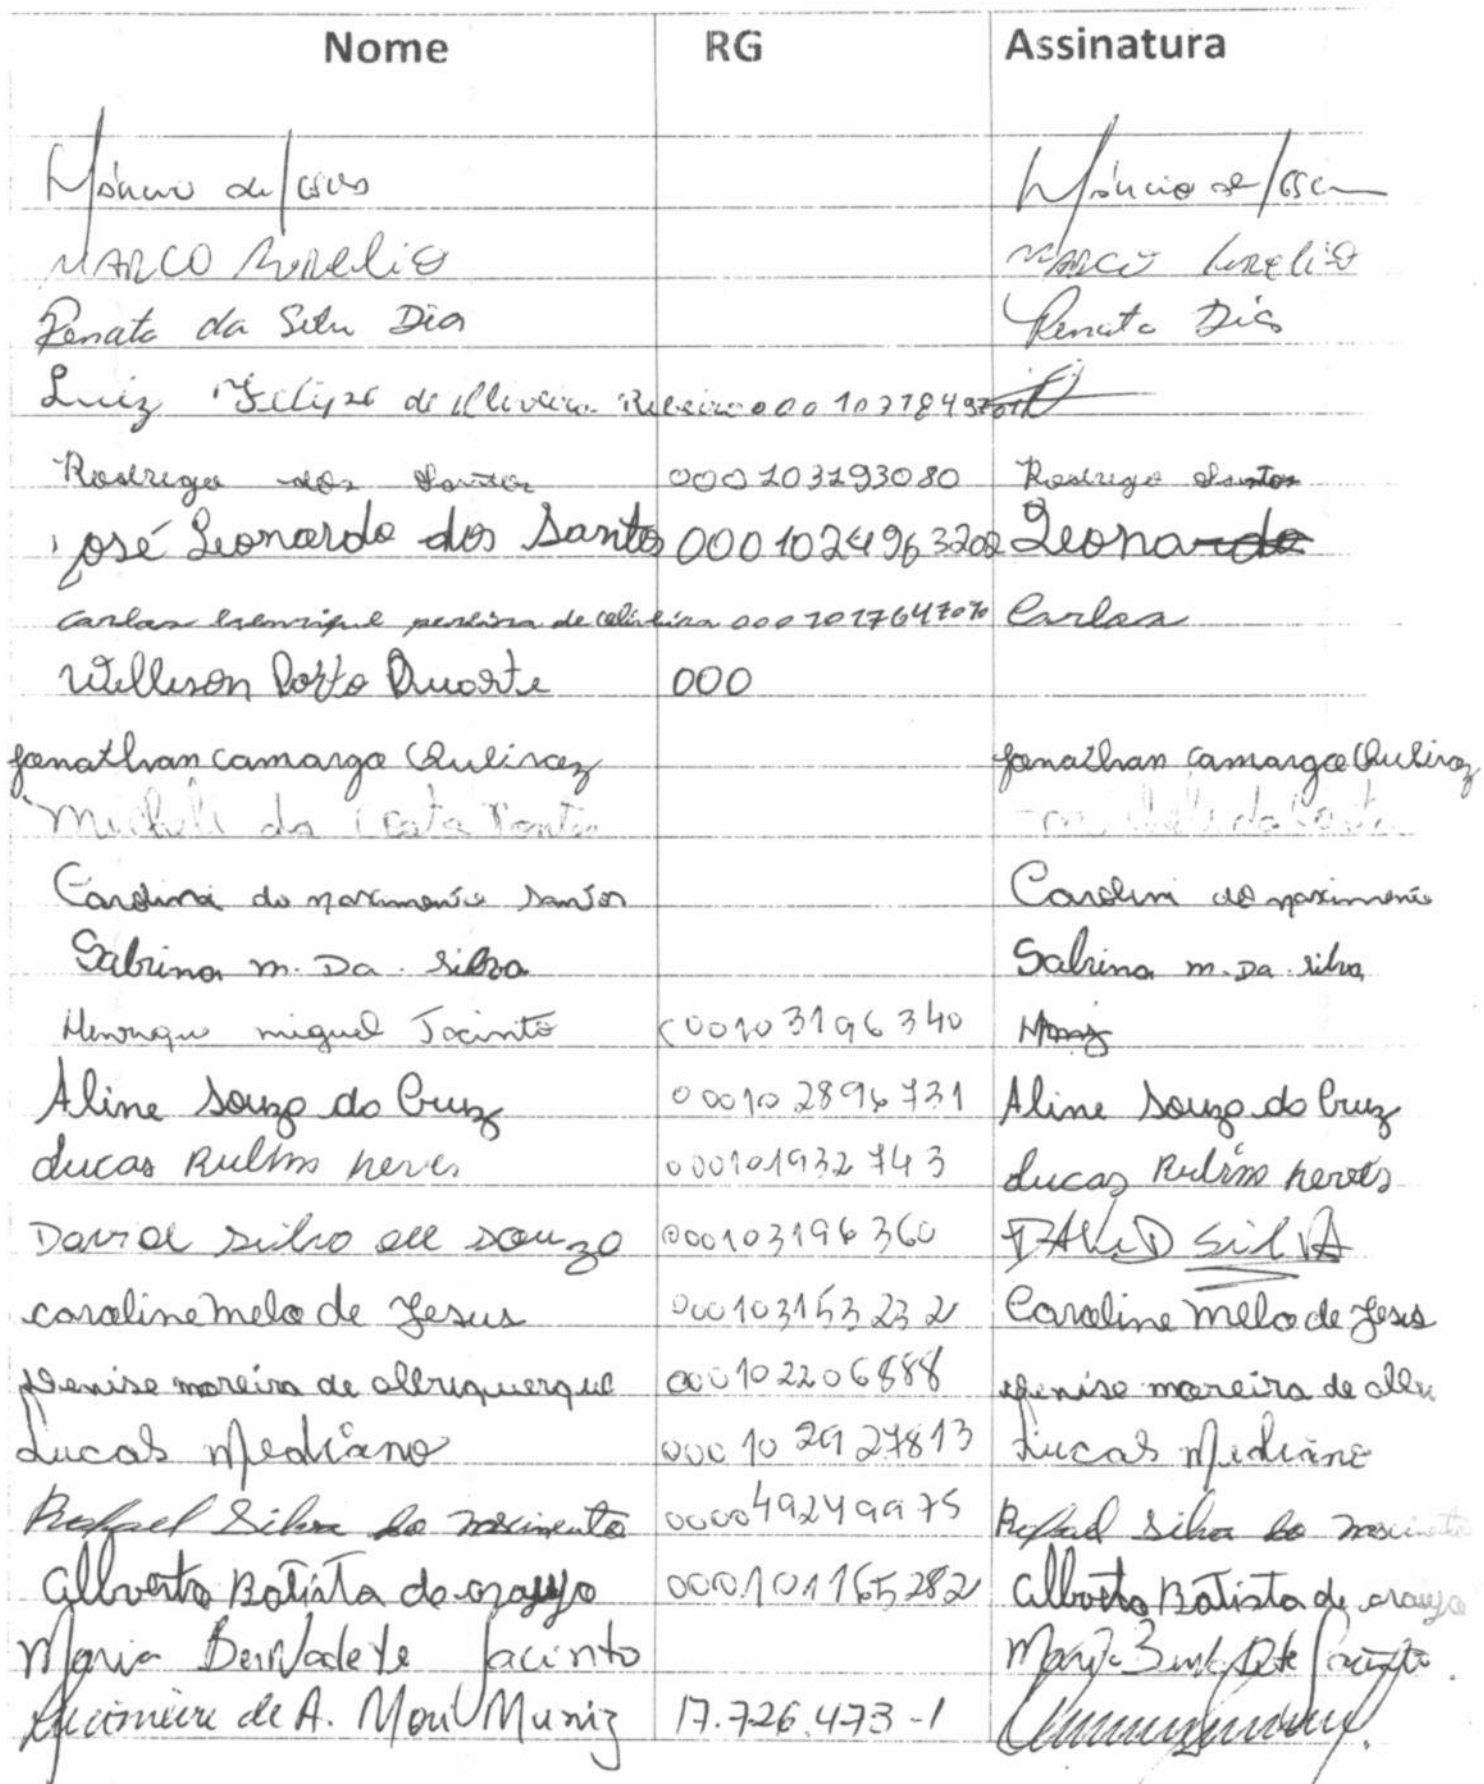 Nome RG Assinatura
Márcio de Jesus Márcio de Jesus
MARCO Aurelio MARCO Aurelio
Renata da Silva Dias Renata Dias
Luiz Felipe de Oliveira Ribeiro
Rodrigo dos Santos 000103193080 Rodrigo Santos
José Leonardo dos Santos 0001024963202 Leonardo
Carlos henrique pereira de oliveira Carlos
Willison Porto Duarte 000
Jonathan camargo Queiroz Jonathan camargo Queiroz
Micheli da Costa
Carolini do nascimento santos Carolini do nascimento
Sabrina m. Da. silva Sabrina m. Da. silva
Henrique miguel Jacinto 000103196340
Aline Souza da Cruz 000102896731 Aline Souza da Cruz
Lucas Rubim neves 000101932743 Lucas Rubim neves
David silva de souza 000103196360 DAVID SILVA
caroline melo de Jesus 000103153232 Caroline melo de Jesus
Denise moreira de alburquerque 000102206888 Denise moreira de
Lucas Mediano 000102927813 Lucas Mediano
Rafael Silva do nascimento 000049249975 Rafael silva do nascimento
Alberto Batista de araujo 000101165282 Alberto Batista de araujo
Maria Bernadete Jacinto Maria Bernadete Jacinto
de A. Mori Muniz 17.726.473-1